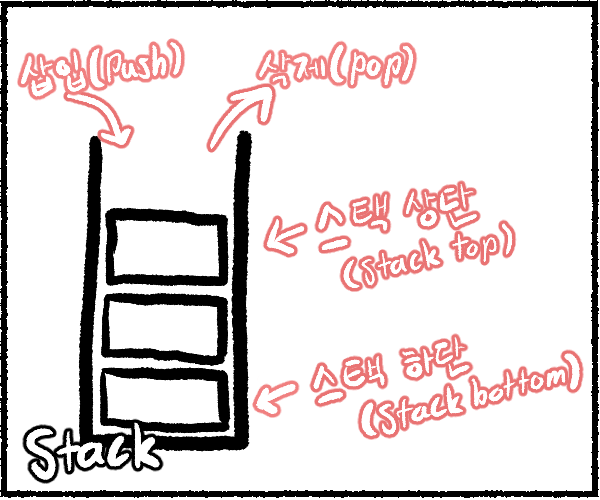 삽입(push)
삭제(pop)
스택 상단
(Stack top)
스택 하단
(Stack bottom)
Stack